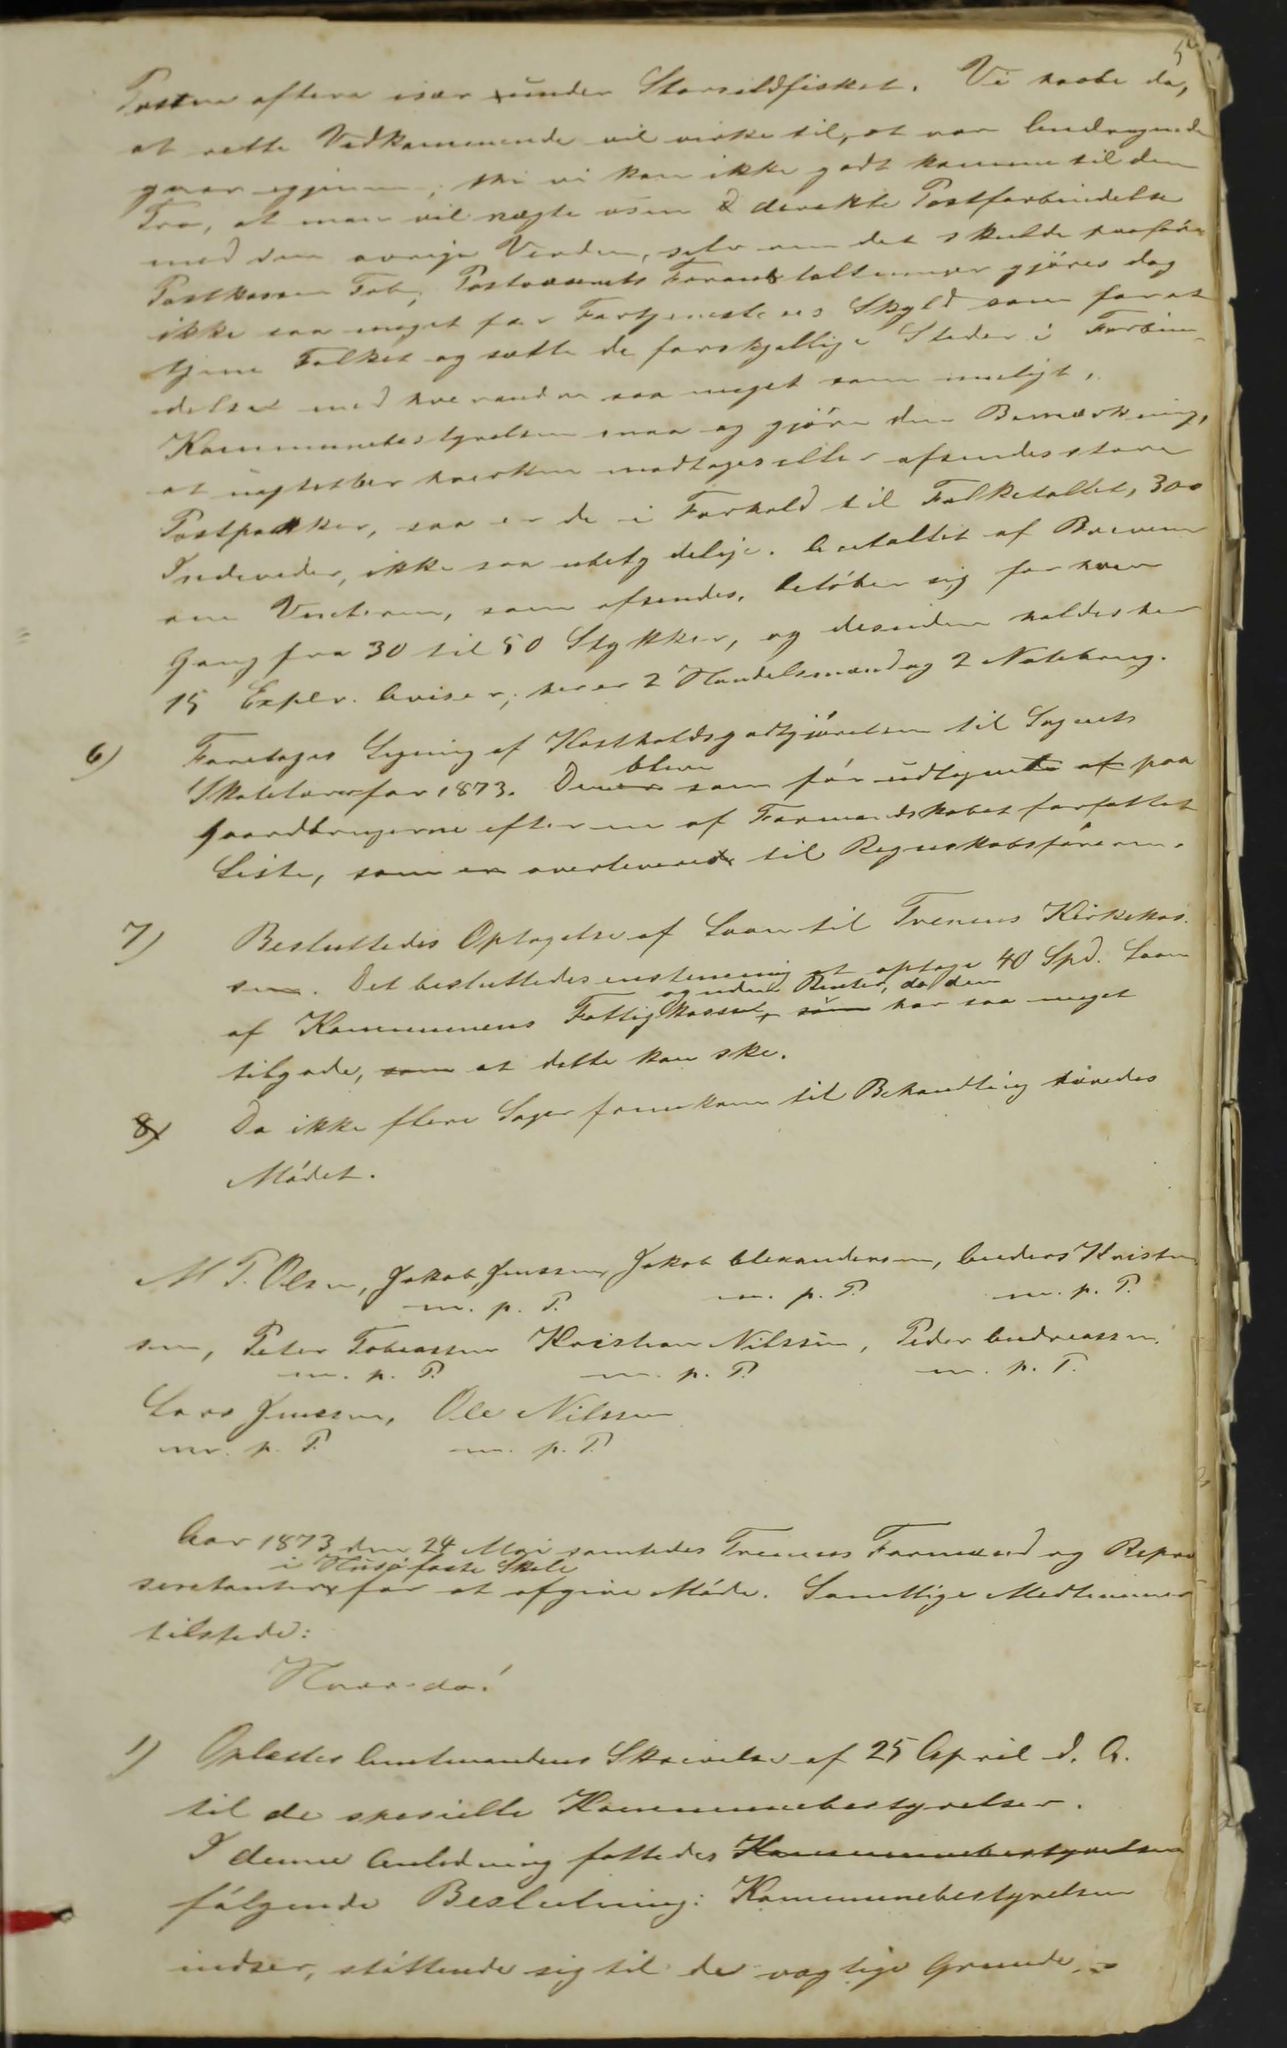 5
Posten oftere især under Storsildfisket. Vi haabe da,
at rette Vedkommende vil virke til, at vor Andragende
gaar igjennem; thi vi kan ikke godt komme til den
Tro, at man vil nægte osen direkte Postforbindelse
med den øvrige Verden, selv om det skulde paaføre
Postkassen Tab; Postvæsenets Foranstaltninger gjøres dog
ikke saa meget for Fortjenestens Skyld som for at
tjene Folket og sætte de forskjellige Steder i Forbin-
delse med hverandre saa meget som muligt.
Kommunebestyrelsen maa og gjøre den Bemærkning,
at uagtet her hverken modtages eller afsendes store
Postpakker, saa er de i Forhold til Folketallet, 300
Individer, ikke saa ubetydelige. Antallet af Brevene
om Vinteren, som afsendes, beløber sig for hver
Gang fra 30 til 50 Stykker, og desuden holdes her
15 Explr. Aviser; her er 2 Handelsmænd og 2 Notebrug.
6) Foretages Ligning af Kostholdsgodtgjørelsen til Sognets
Skolelærer for 1873. Denne blev som før udlignet af paa
Gaardbrugerne efter en af Formandskabet forfattet
Liste, som er overleveret til Regnskabsføreren.
7) Besluttedes Optagelse af Laan til Trænens Kirkekas-
sen. Det besluttedes enstemmig at optage 40 Spd. Laan
og uden Renter, da den
af Kommunens Fattigkasse, som har saa meget
tilgode, som at dette kan ske.
8) Da ikke flere Sager forekom til Behandling hævedes
Mødet.
M P. Olsen, Jakob Jenssen, Jakob Alexandersen, Anders Kristen
m. p. P. m. p. P. m. p. P.
sen, Peter Tobiassen Kristian Nilssen, Peder Andreassen.
m. p. P. m. p. P. m. p. P.
Lars Jenssen, Ole Nilssen
m. p. P. m. p. P.
Aar 1873 den 24 Mai samledes Trænens Formænd og Repræ
i Husø faste Skole
sentanter for at afgive Møde. Samtlige Medlemmer
tilstede:
Hvor da!
1) Oplæstes Amtmandens Skrivelse af 25 April d. A.
til de spesielle Kommunebestyrelser.
I denne Anledning fattedes Kommunebestyrelsen
følgende Beslutning: Kommunebestyrelsen
indser, støttende sig til de vægtige Grunde,